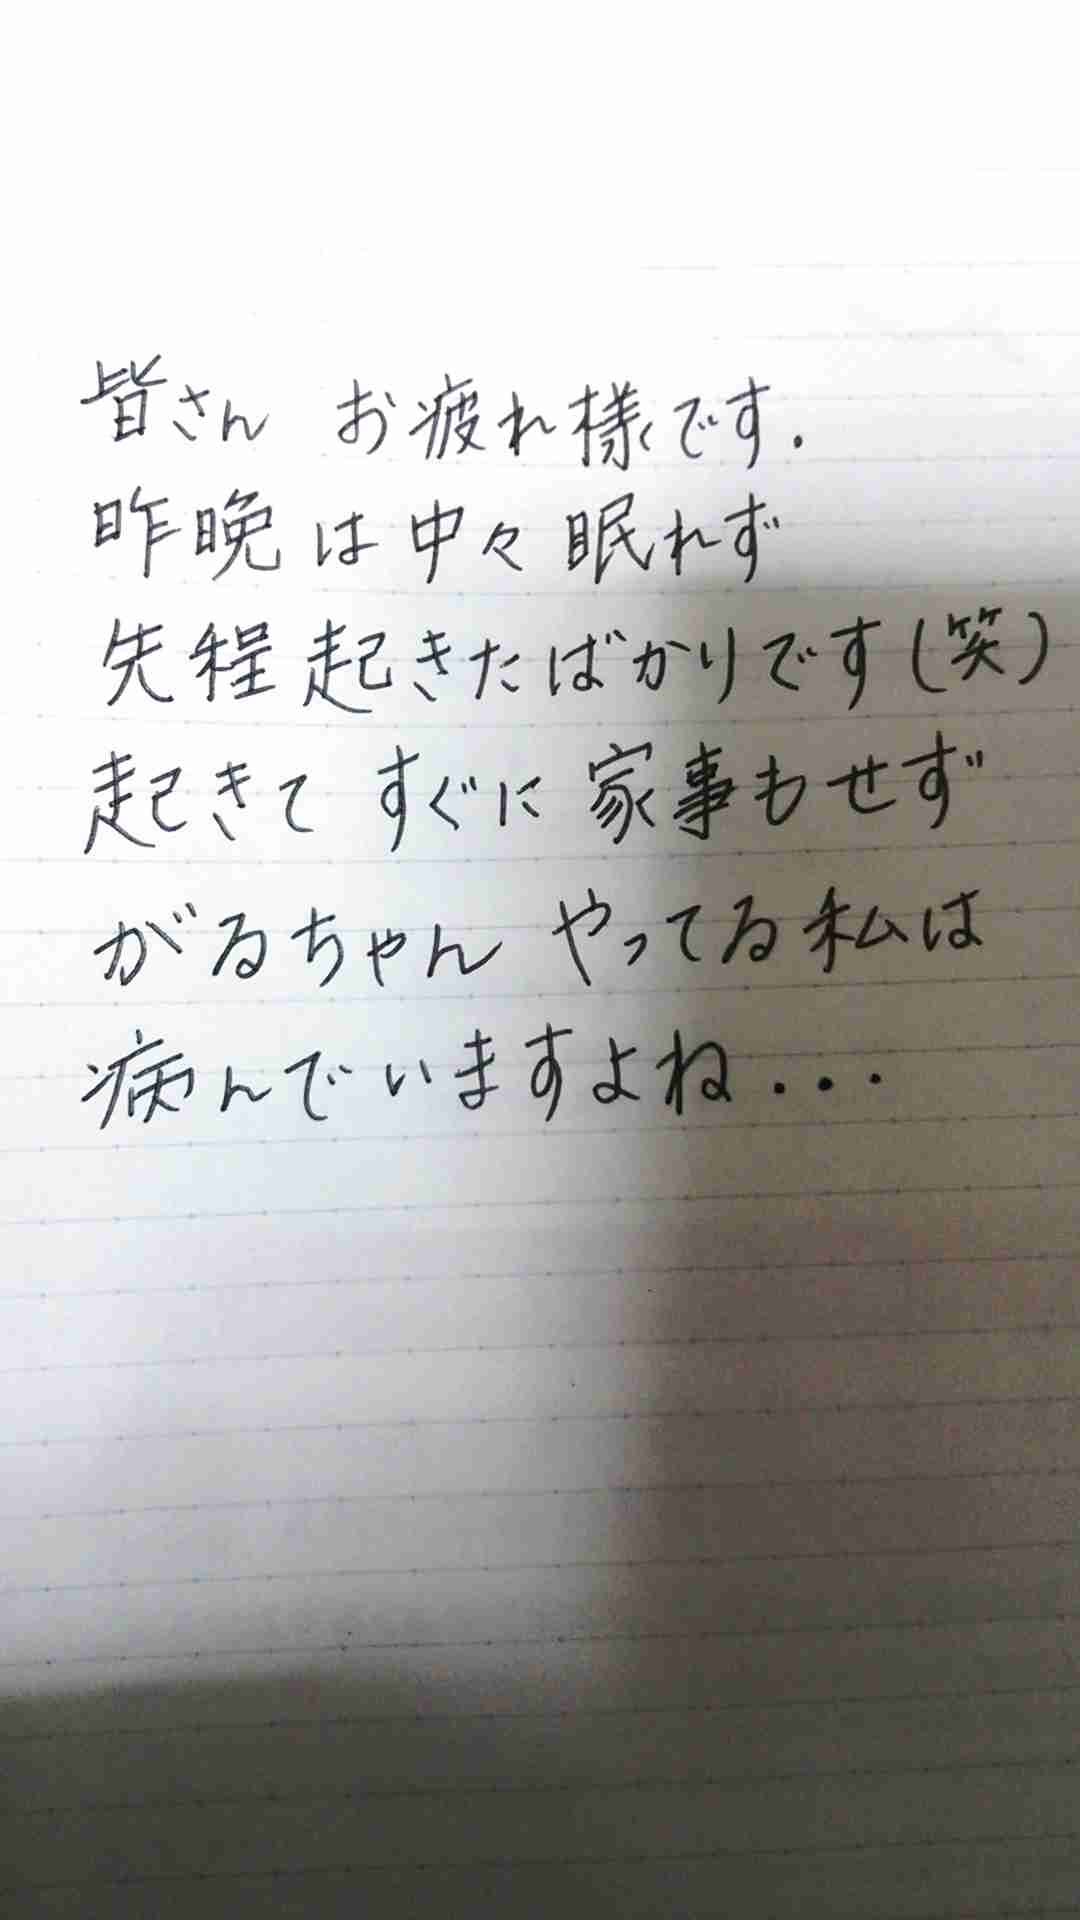 皆さん お疲れ様です.
昨晩は中々眠れず
先程起きたばかりです(笑)
起きてすぐに家事もせず
がるちゃんやってる私は
病んでいますよね...